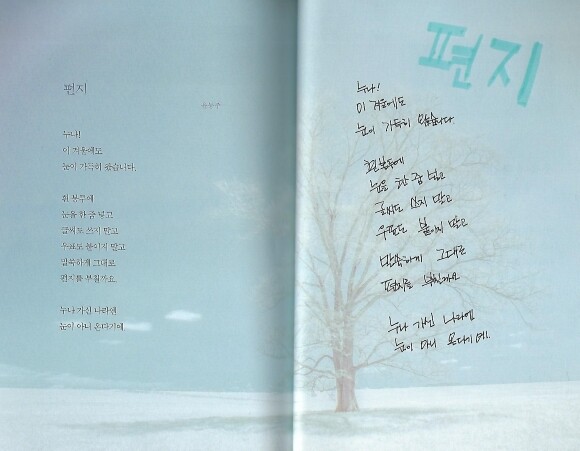 편지
윤동주
누나!
이 겨울에도
눈이 가득히 왔습니다.
흰 봉투에
눈을 한 줌 넣고
글씨도 쓰지 말고
우표도 붙이지 말고
말쑥하게 그대로
편지를 부칠까요.
누나 가신 나라엔
눈이 아니 온다기에.
편지
누나!
이 겨울에도
눈이 가득히 왔습니다.
흰 봉투에
눈을 한 줌 넣고
글씨도 쓰지 말고
우표도 붙이지 말고
말쑥하게 그대로
편지를 부칠까요
누나 가신 나라엔
눈이 아니 온다기에.